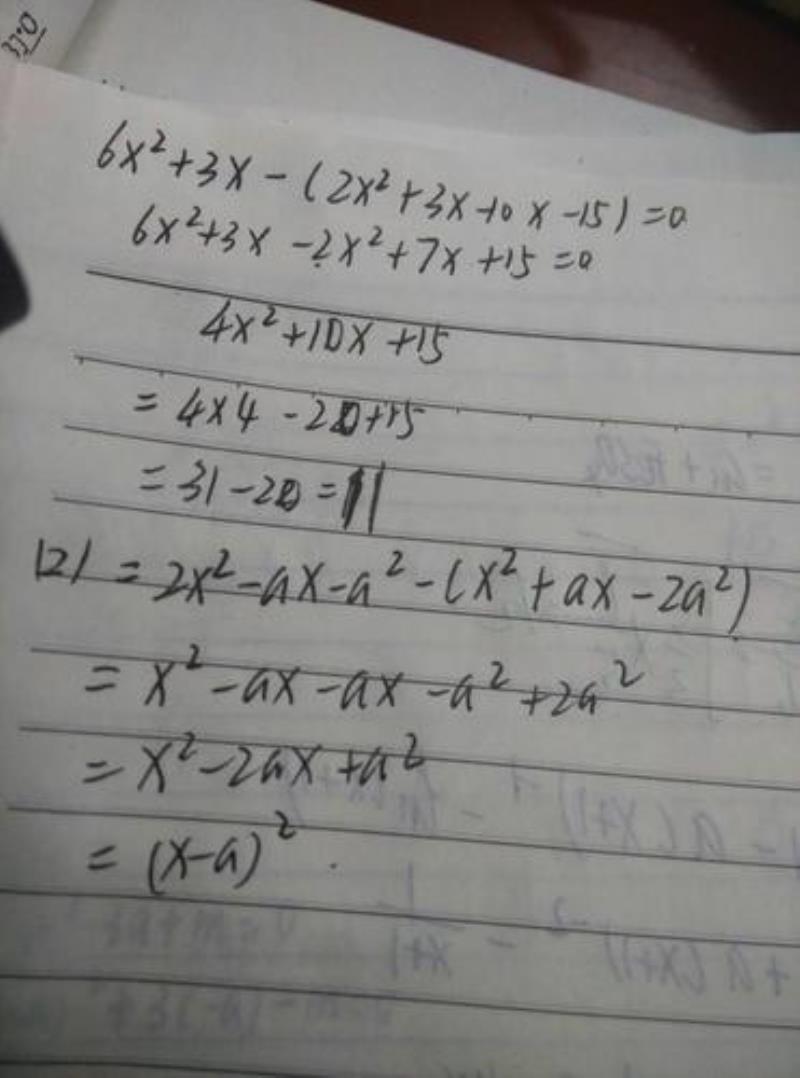 6x²+3x-(2x²+3x-10x-15)=0
6x²+3x-2x²+7x+15=0
4x²+10x+15
=4×4-20+15
=31-20=11
(2)=2x²-ax-a²-(x²+ax-2a²)
=x²-ax-ax-a²+2a²
=x²-2ax+a²
=(x-a)²